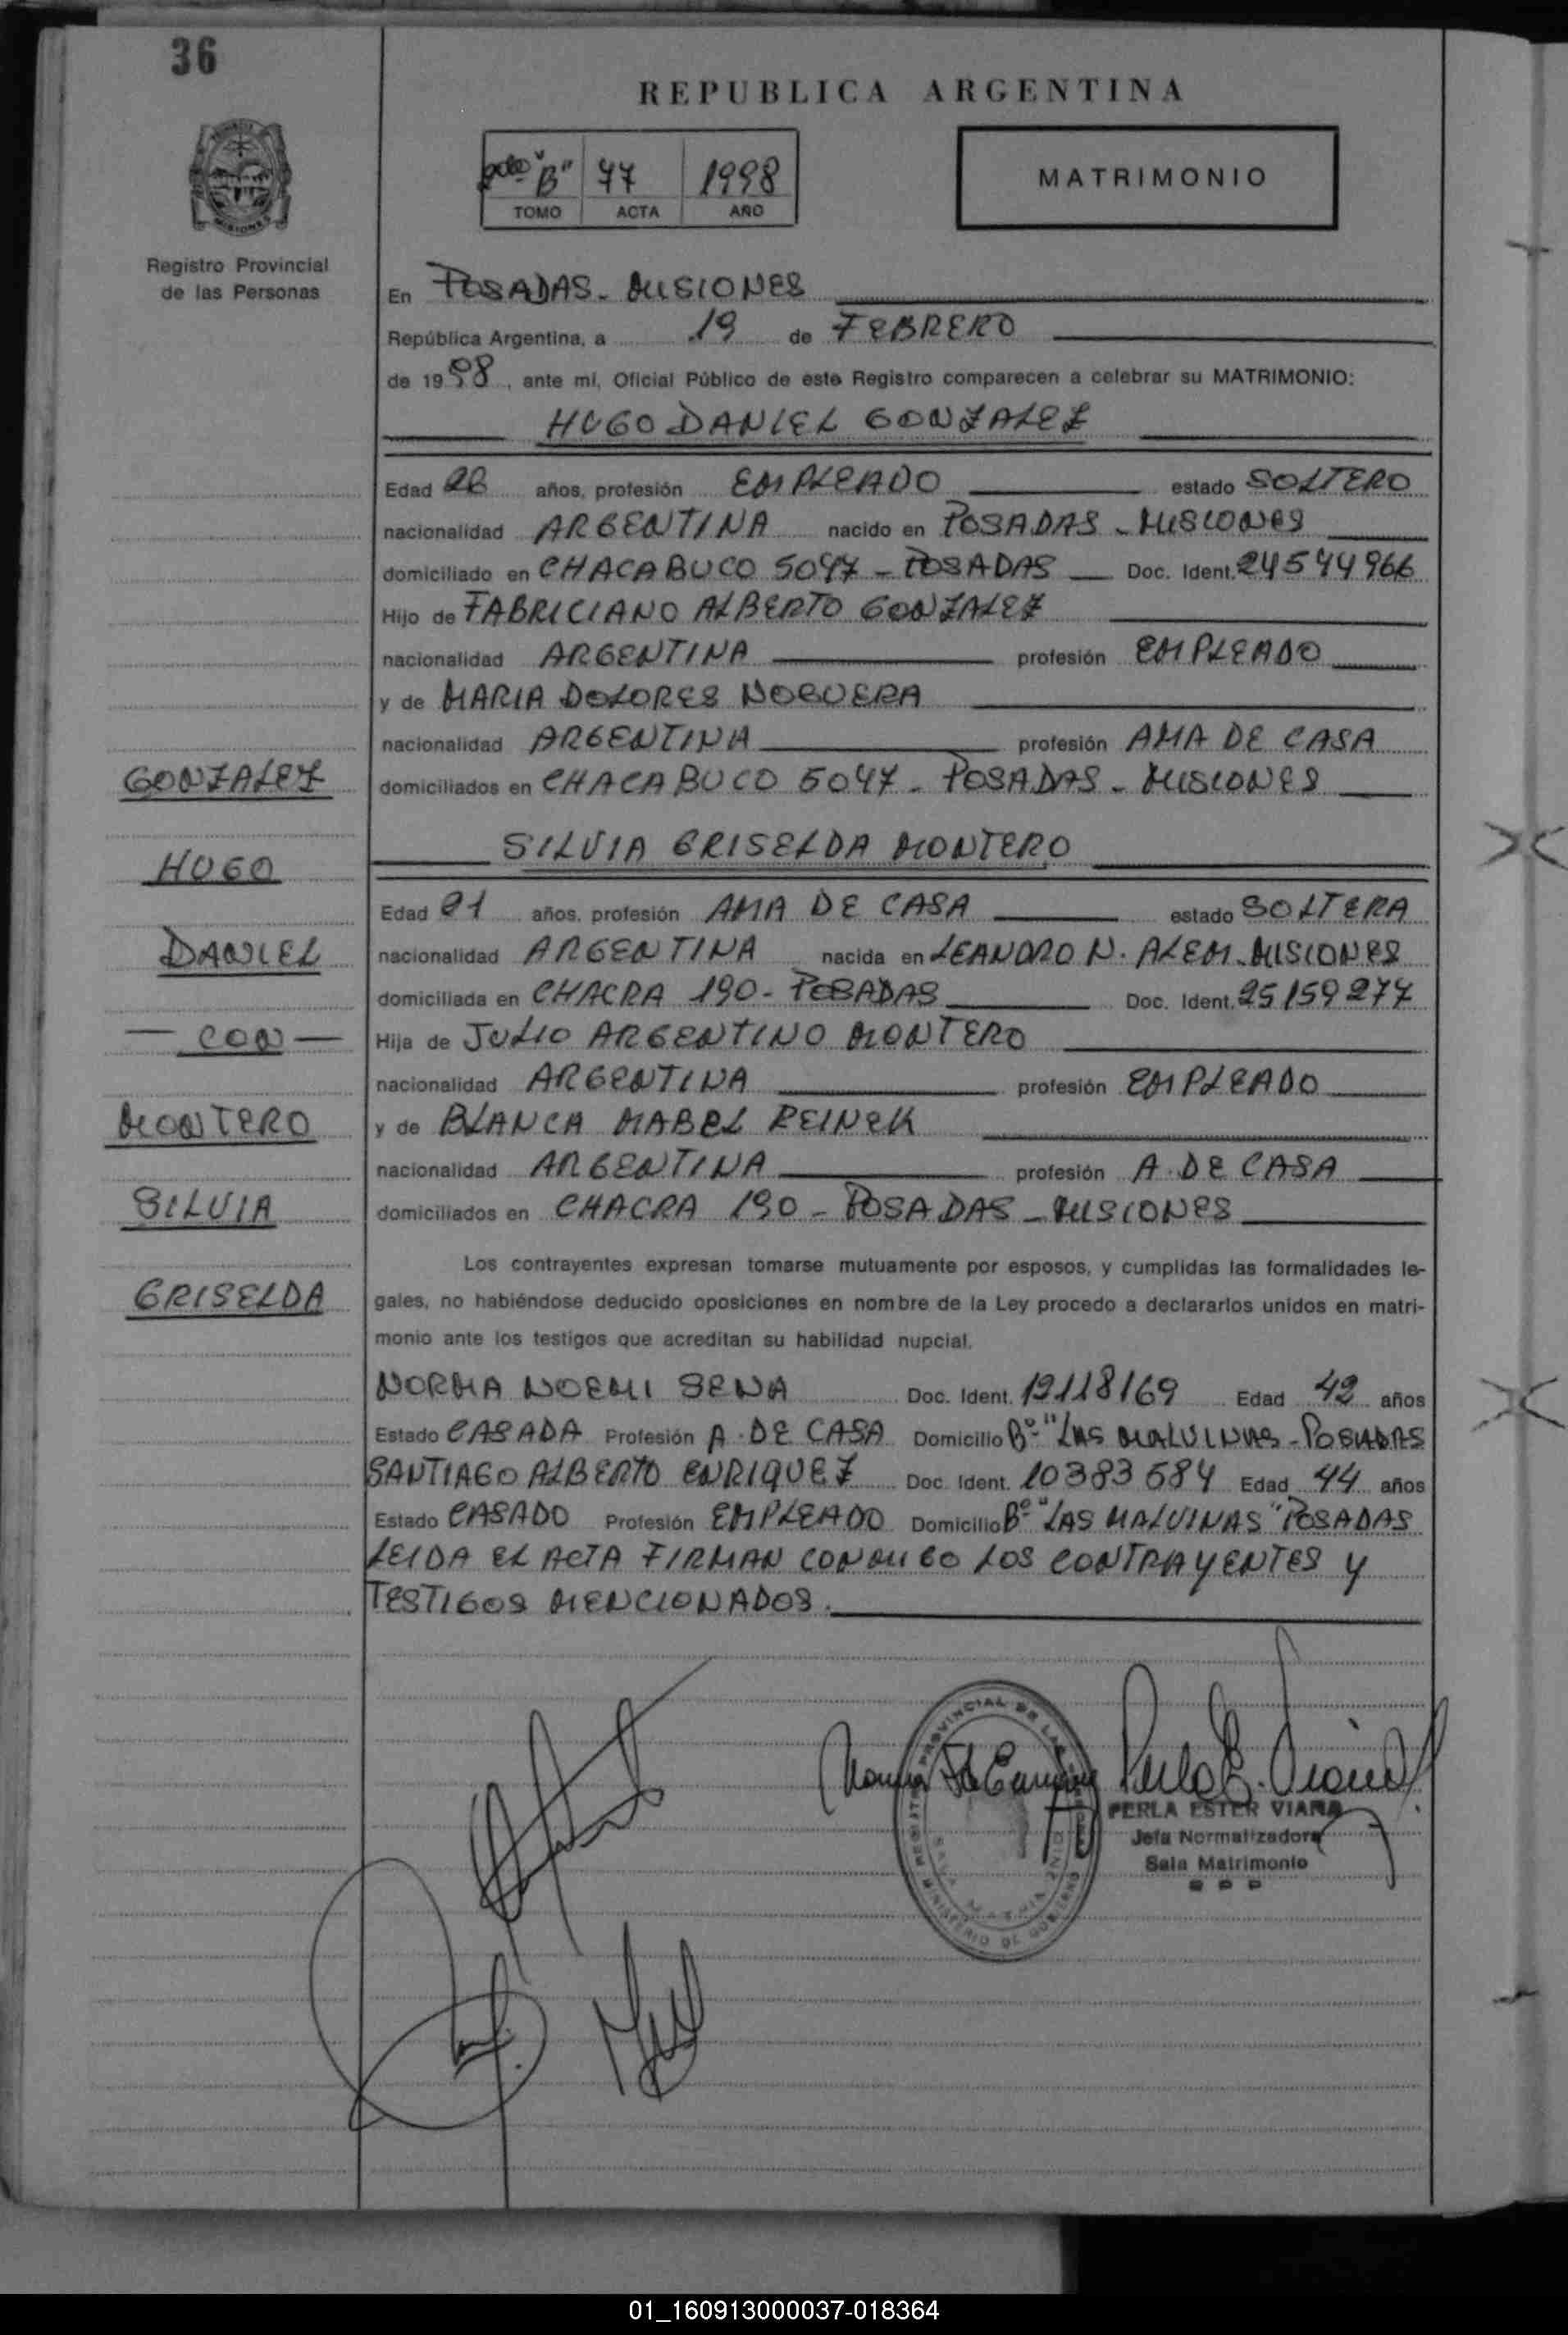 36
REPUBLICA ARGENTINA
"B" 77 1998
TOMO ACTA AÑO
MATRIMONIO
MISIONES
Registro Provincial
de las Personas
En POSADAS - MISIONES
República Argentina, a 19 de FEBRERO
de 1998, ante mí, Oficial Público de este Registro comparecen a celebrar su MATRIMONIO:
HUGO DANIEL GONZALEZ
Edad años, profesión EMPLEADO estado SOLTERO
nacionalidad ARGENTINA nacido en POSADAS - MISIONES
domiciliado en CHACABUCO 5047 - POSADAS Doc. Ident. 24544966
Hijo de FABRICIANO ALBERTO GONZALEZ
nacionalidad ARGENTINA profesión EMPLEADO
y de MARIA DOLORES NOGUERA
nacionalidad ARGENTINA profesión AMA DE CASA
domiciliados en CHACABUCO 5047 - POSADAS - MISIONES
SILVIA GRISELDA MONTERO
Edad 21 años, profesión AMA DE CASA estado SOLTERA
nacionalidad ARGENTINA nacida en LEANDRO N. ALEM - MISIONES
domiciliada en CHACRA 190 - POSADAS Doc. Ident. 25159277
Hija de JULIO ARGENTINO MONTERO
nacionalidad ARGENTINA profesión EMPLEADO
y de BLANCA MABEL REINEK
nacionalidad ARGENTINA profesión A. DE CASA
domiciliados en CHACRA 190 - POSADAS - MISIONES
GONZALEZ
HUGO
DANIEL
— CON —
MONTERO
SILVIA
GRISELDA
Los contrayentes expresan tomarse mutuamente por esposos, y cumplidas las formalidades le-
gales, no habiéndose deducido oposiciones en nombre de la Ley procedo a declararlos unidos en matri-
monio ante los testigos que acreditan su habilidad nupcial.
NORMA NOEMI SENA Doc. Ident. 12118169 Edad 42 años
Estado CASADA Profesión A. DE CASA Domicilio Bº "LAS MALVINAS - POSADAS
SANTIAGO ALBERTO ENRIQUEZ Doc. Ident. 10383684 Edad 44 años
Estado CASADO Profesión EMPLEADO Domicilio Bº "LAS MALVINAS" POSADAS
LEIDA EL ACTA FIRMAN CONMIGO LOS CONTRAYENTES Y
TESTIGOS MENCIONADOS.
PERLA ESTER VIANA
Jefa Normalizadora
Sala Matrimonio
01_160913000037-018364